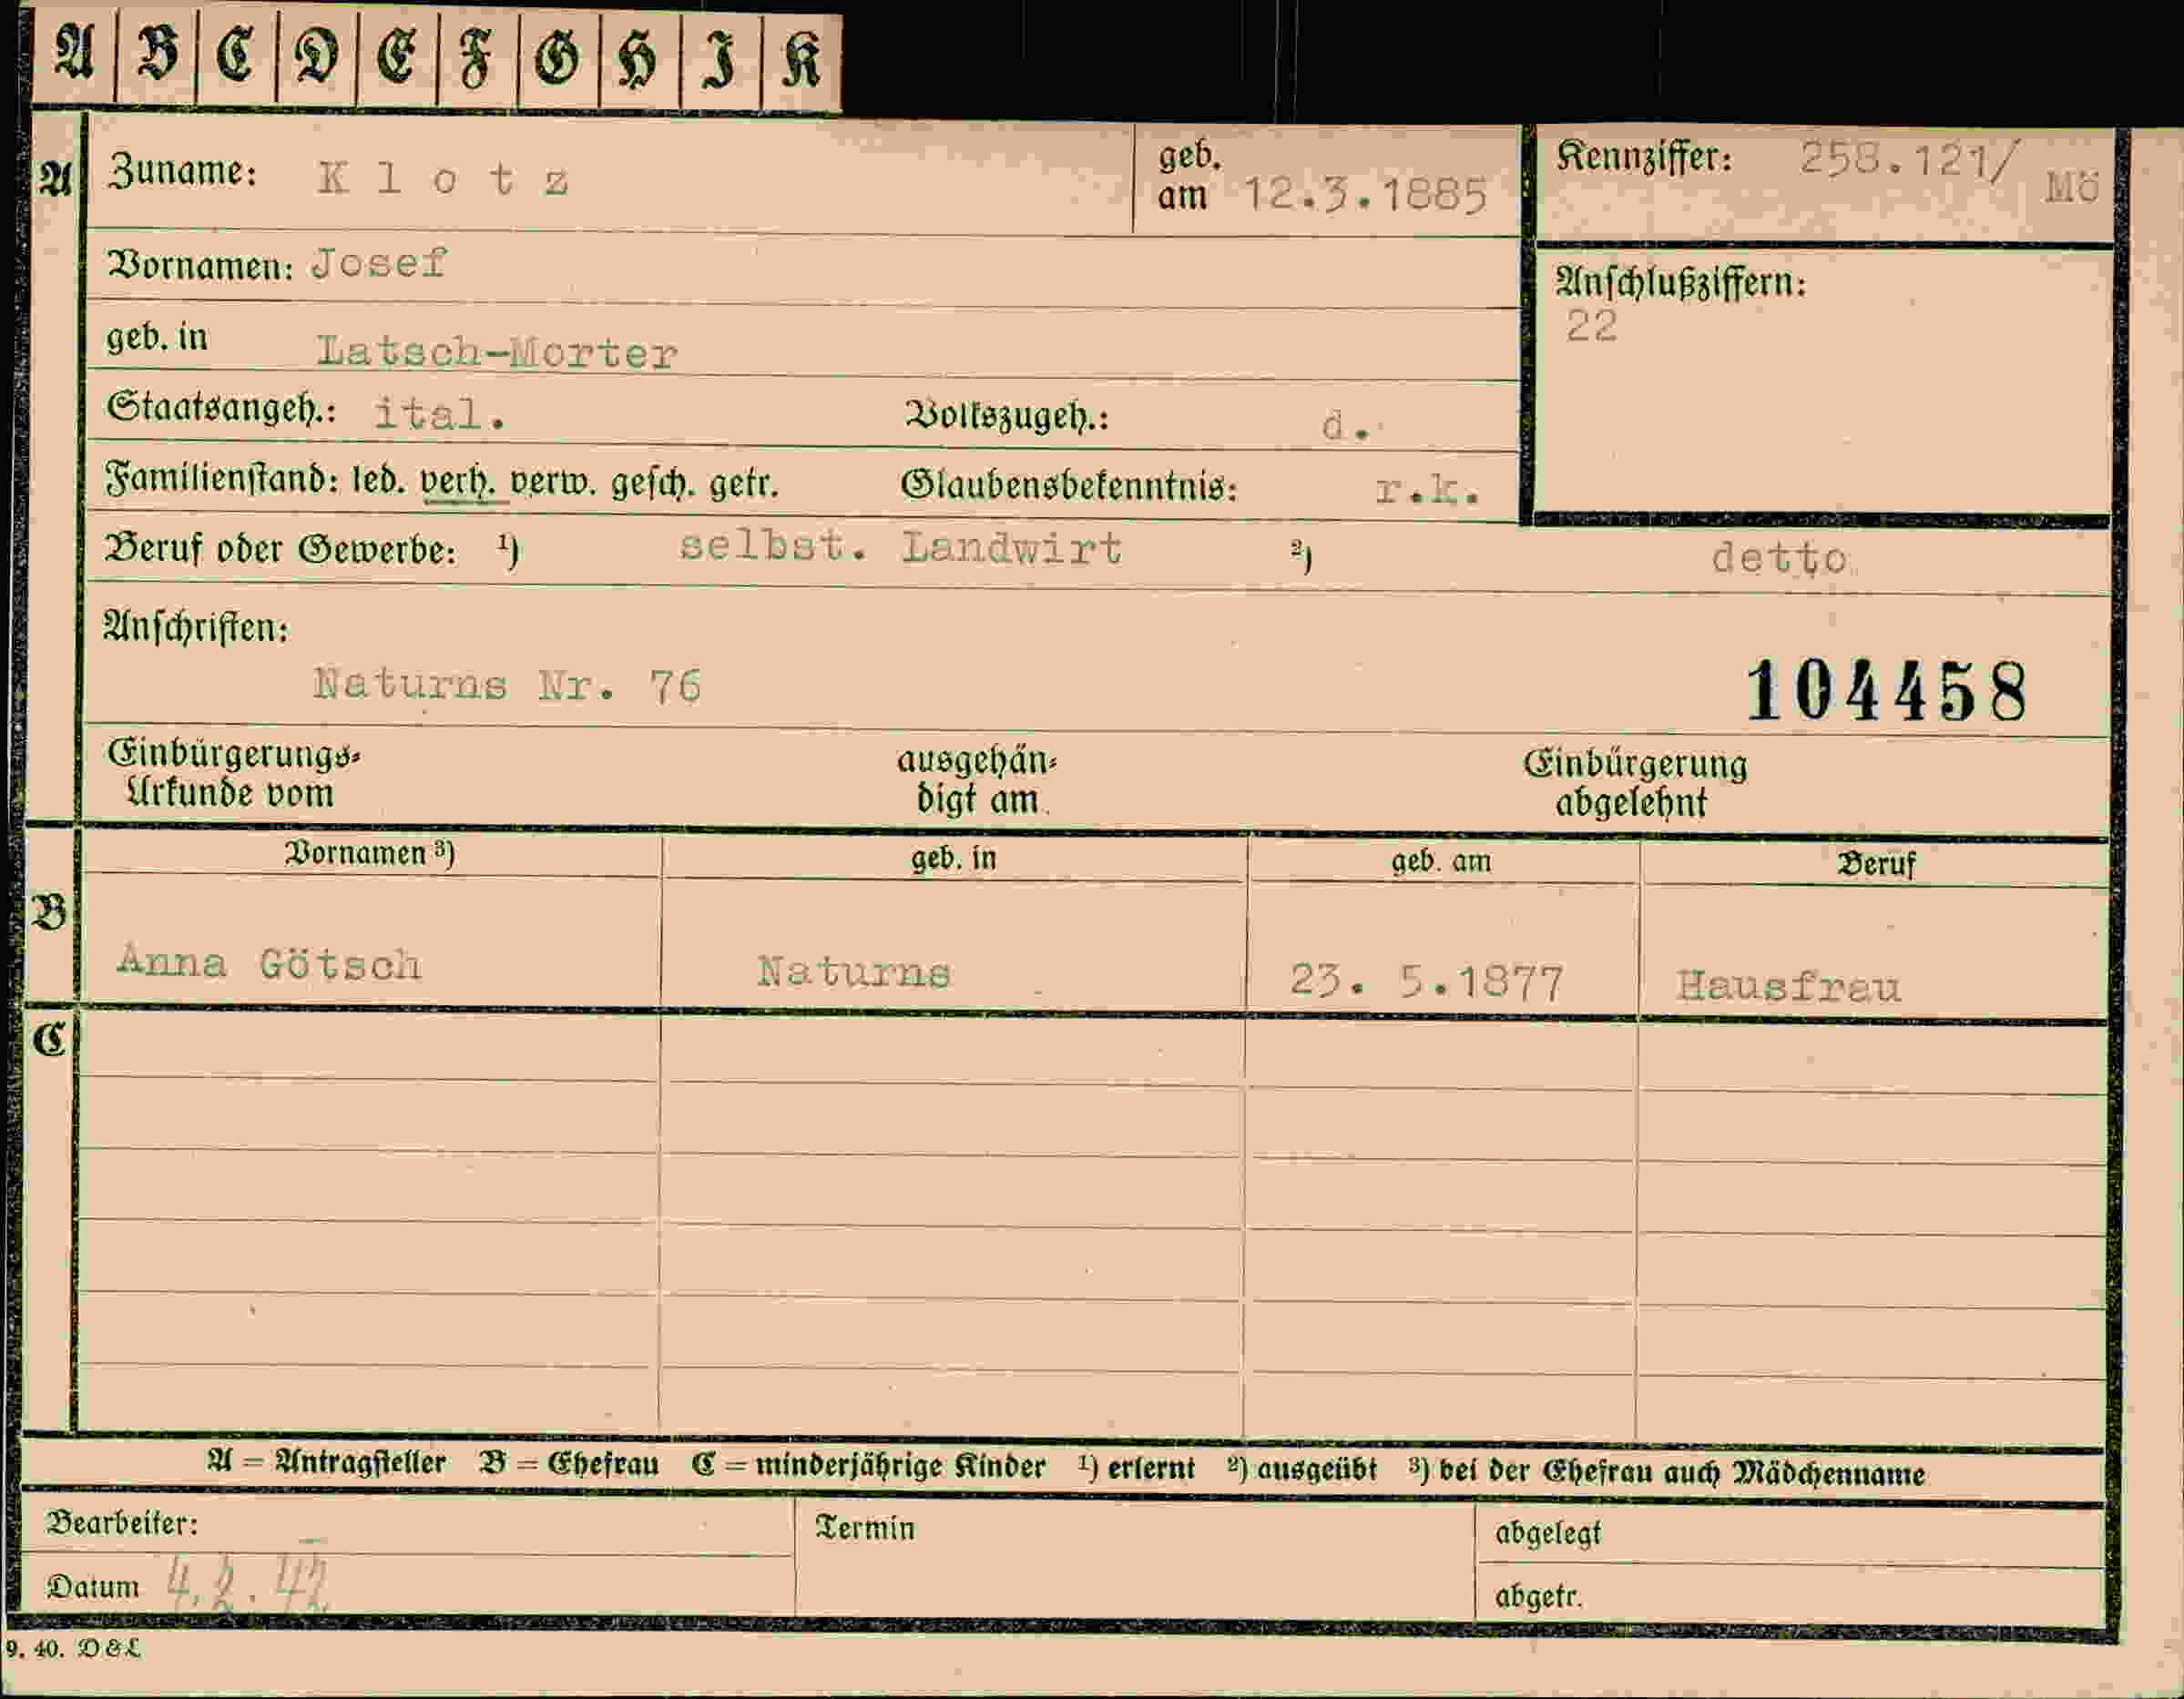 A B C D E F G H I K
A Zuname: Klotz geb. am 12.3.1885
Kennziffer: 258.121/ Mö
Vornamen: Josef
Anschlußziffern:
22
geb. in Latsch-Morter
Staatsangeh.: ital. Volkszugeh.: d.
Familienstand: led. verh. verw. gesch. getr. Glaubensbekenntnis: r.k.
Beruf oder Gewerbe: ¹) selbst. Landwirt ²) detto
Anschriften:
Naturns Nr. 76
104458
Einbürgerungs-
Urkunde vom
ausgehän-
digt am
Einbürgerung
abgelehnt
Vornamen ³) geb. in geb. am Beruf
B
Anna Götsch Naturns 23. 5.1877 Hausfrau
C
A = Antragsteller B = Ehefrau C = minderjährige Kinder ¹) erlernt ²) ausgeübt ³) bei der Ehefrau auch Mädchenname
Bearbeiter: Termin abgelegt
Datum 4.2.42 abgetr.
9. 40. D&L